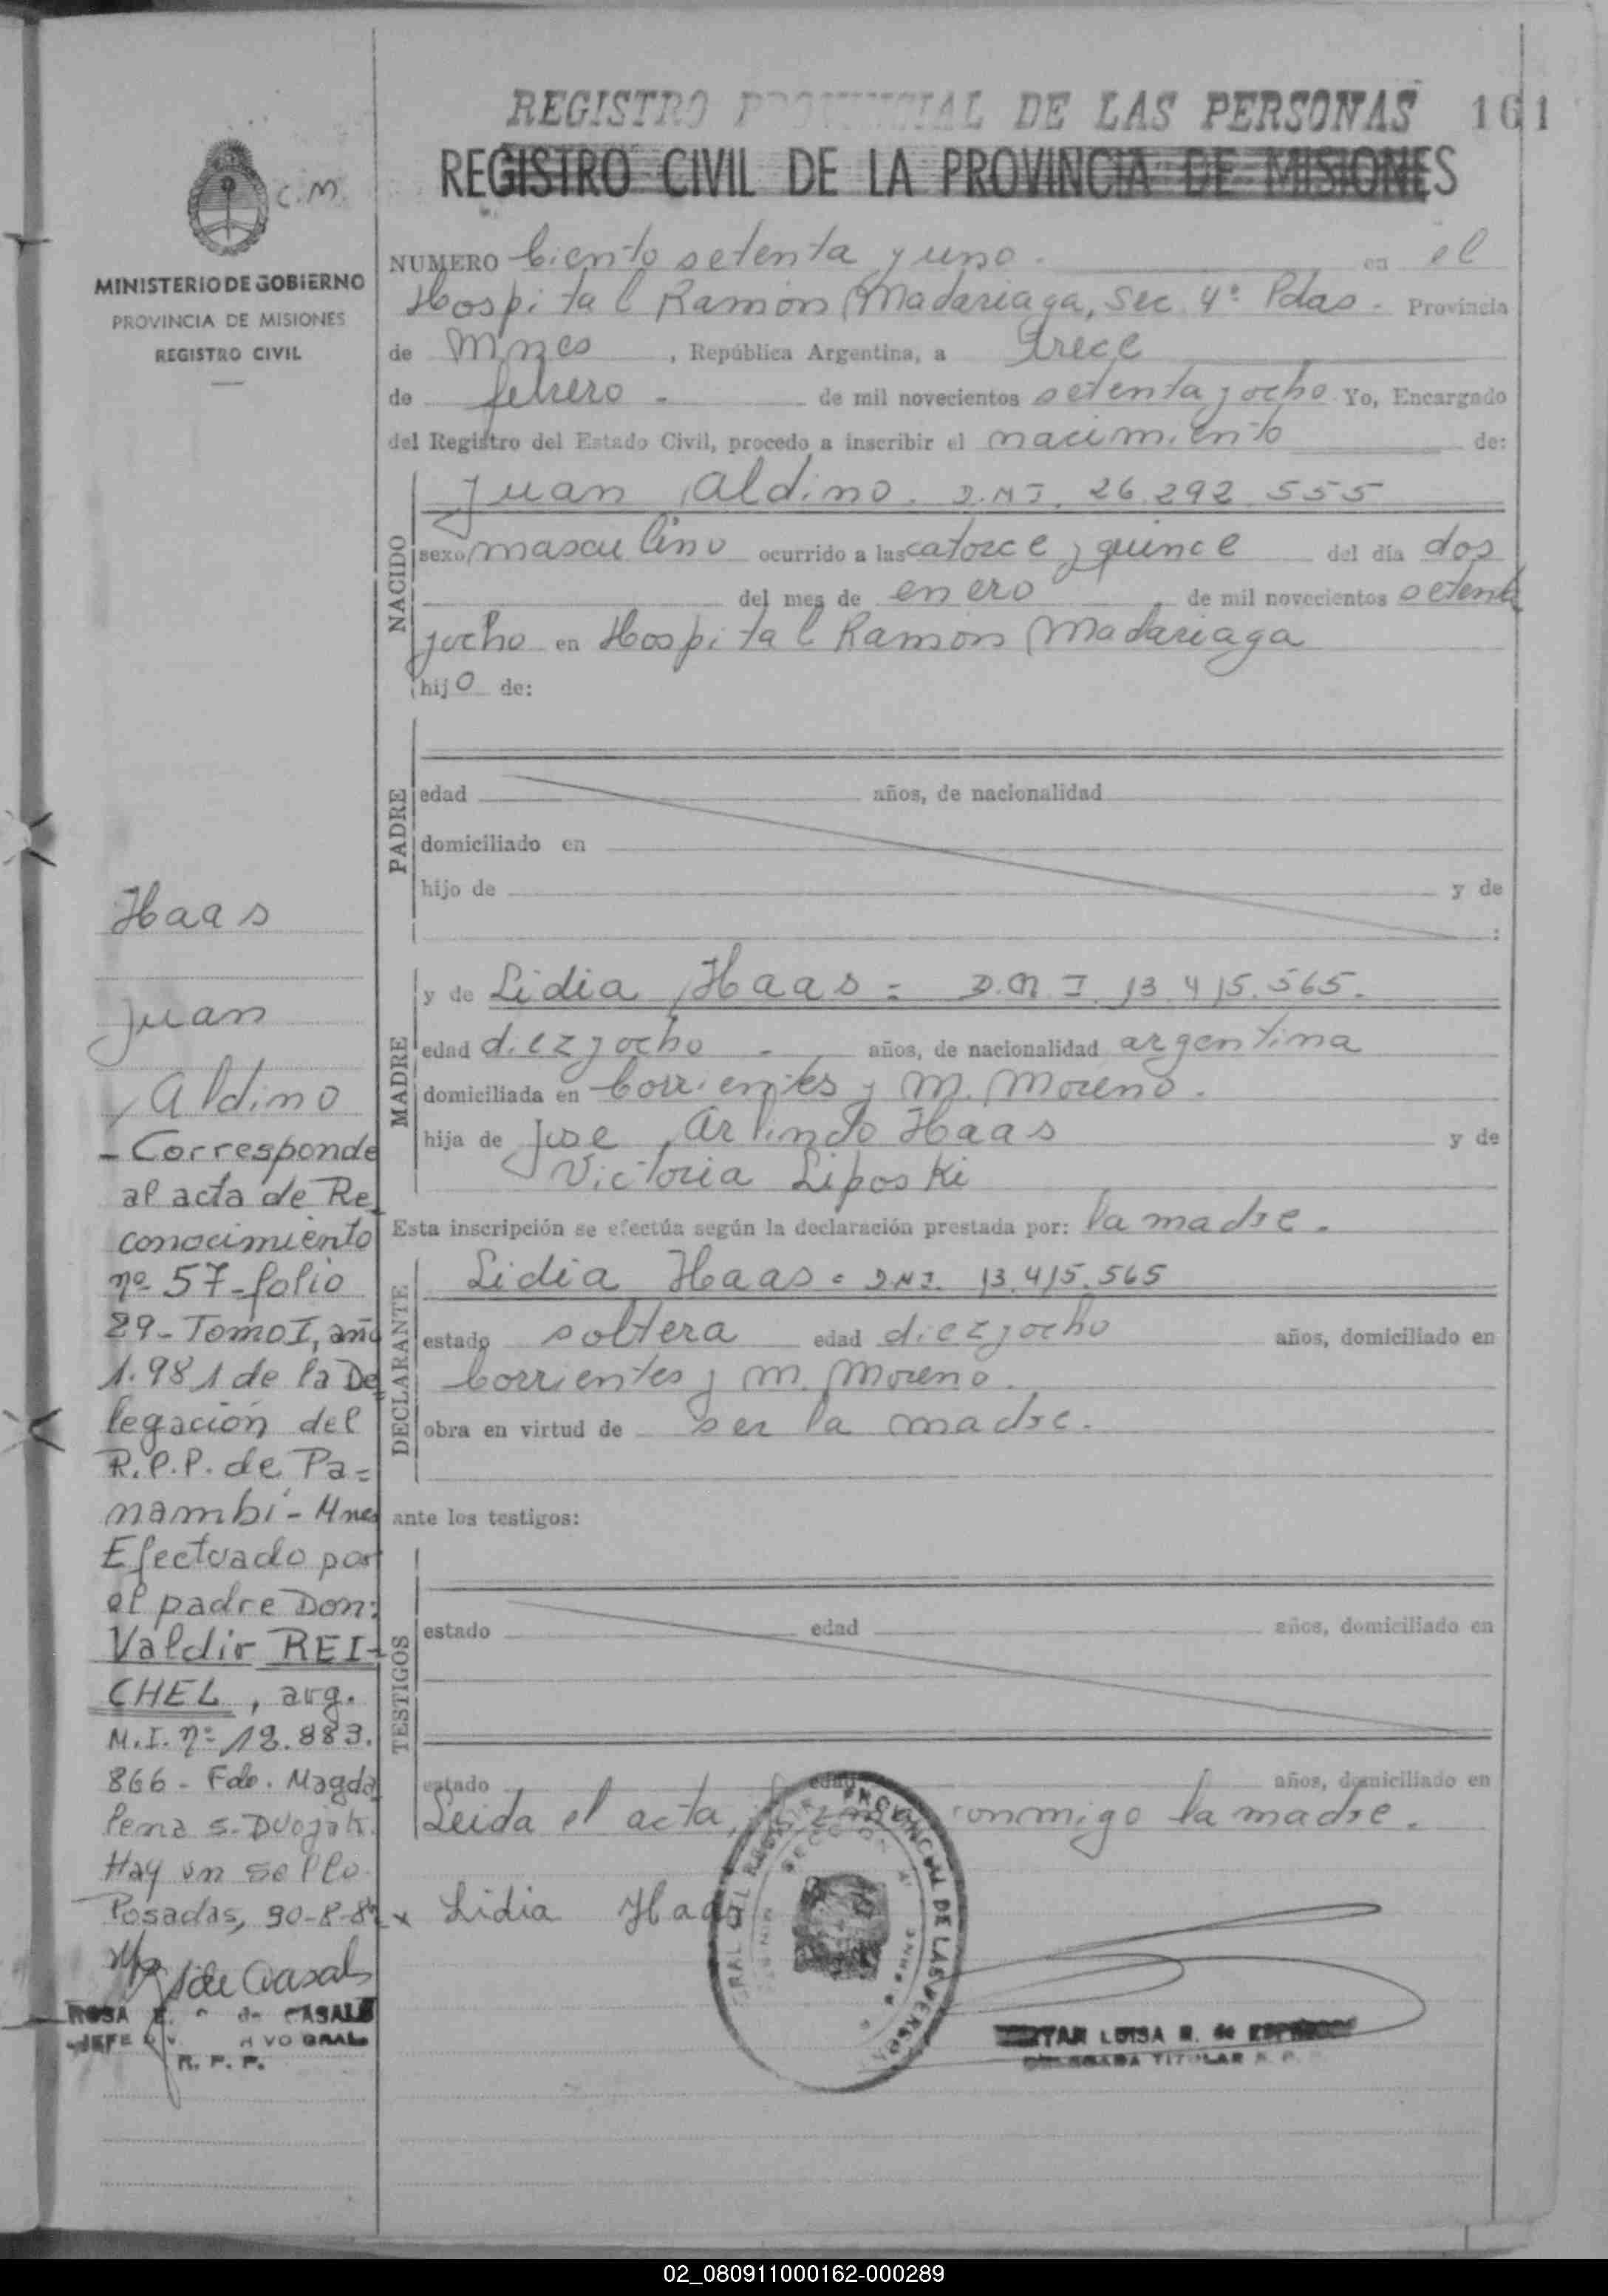 REGISTRO PROVINCIAL DE LAS PERSONAS 161
REGISTRO CIVIL DE LA PROVINCIA DE MISIONES
C.M.
MINISTERIO DE GOBIERNO
PROVINCIA DE MISIONES
REGISTRO CIVIL
NUMERO Ciento setenta y uno. en el
Hospital Ramón Madariaga, Sec. 4º Pdas - Provincia
de Mnes , República Argentina, a trece
de febrero - de mil novecientos setenta y ocho Yo, Encargado
del Registro del Estado Civil, procedo a inscribir el nacimiento de:
NACIDO
Juan Aldino. D.N.I. 26.292.555
sexo masculino ocurrido a las catorce y quince del día dos
del mes de enero de mil novecientos setenta
y ocho en Hospital Ramón Madariaga
hijo de:
PADRE
edad años, de nacionalidad
domiciliado en
hijo de y de
:
MADRE
y de Lidia Haas = D.N.I. 13.415.565.
edad diez y ocho - años, de nacionalidad argentina
domiciliada en Corrientes y M. Moreno.
hija de Jose Arlindo Haas y de
Victoria Liposki
Esta inscripción se efectúa según la declaración prestada por: la madre.
DECLARANTE
Lidia Haas = D.N.I. 13.415.565
estado soltera edad diez y ocho años, domiciliado en
Corrientes y M. Moreno.
obra en virtud de ser la madre.
ante los testigos:
TESTIGOS
estado edad años, domiciliado en
estado edad años, domiciliado en
Leida el acta, conmigo la madre.
x Lidia Haas
PROVINCIAL DE LAS PERSONAS
SECCION
LUISA R. de
DELEGADA TITULAR R. P.
Haas
Juan
Aldino
- Corresponde
al acta de Re
conocimiento
nº 57-folio
29- Tomo I, año
1.981 de la De
legación del
R.P.P. de Pa=
nambí - Mnes
Efectuado por
el padre Don:
Valdir REI-
CHEL, arg.
M.I. nº 12.883.
866 - Fdo. Magda
lena S. Dvojak.
Hay un sello
Posadas, 30-8-8
de Casals
ROSA E. de CASALS
JEFE GRAL.
R. P. P.
02_080911000162-000289